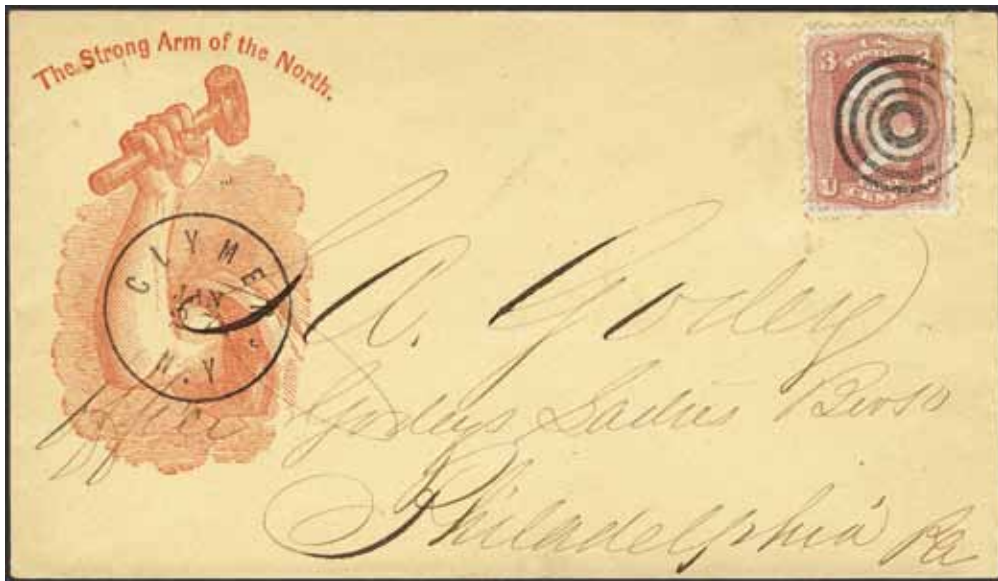 The Strong Arm of the North.
3 U.S. 3
U CENTS
CLYMER
N.Y.
L. A. Godey
Office Godeys Ladies Book
Philadelphia Pa